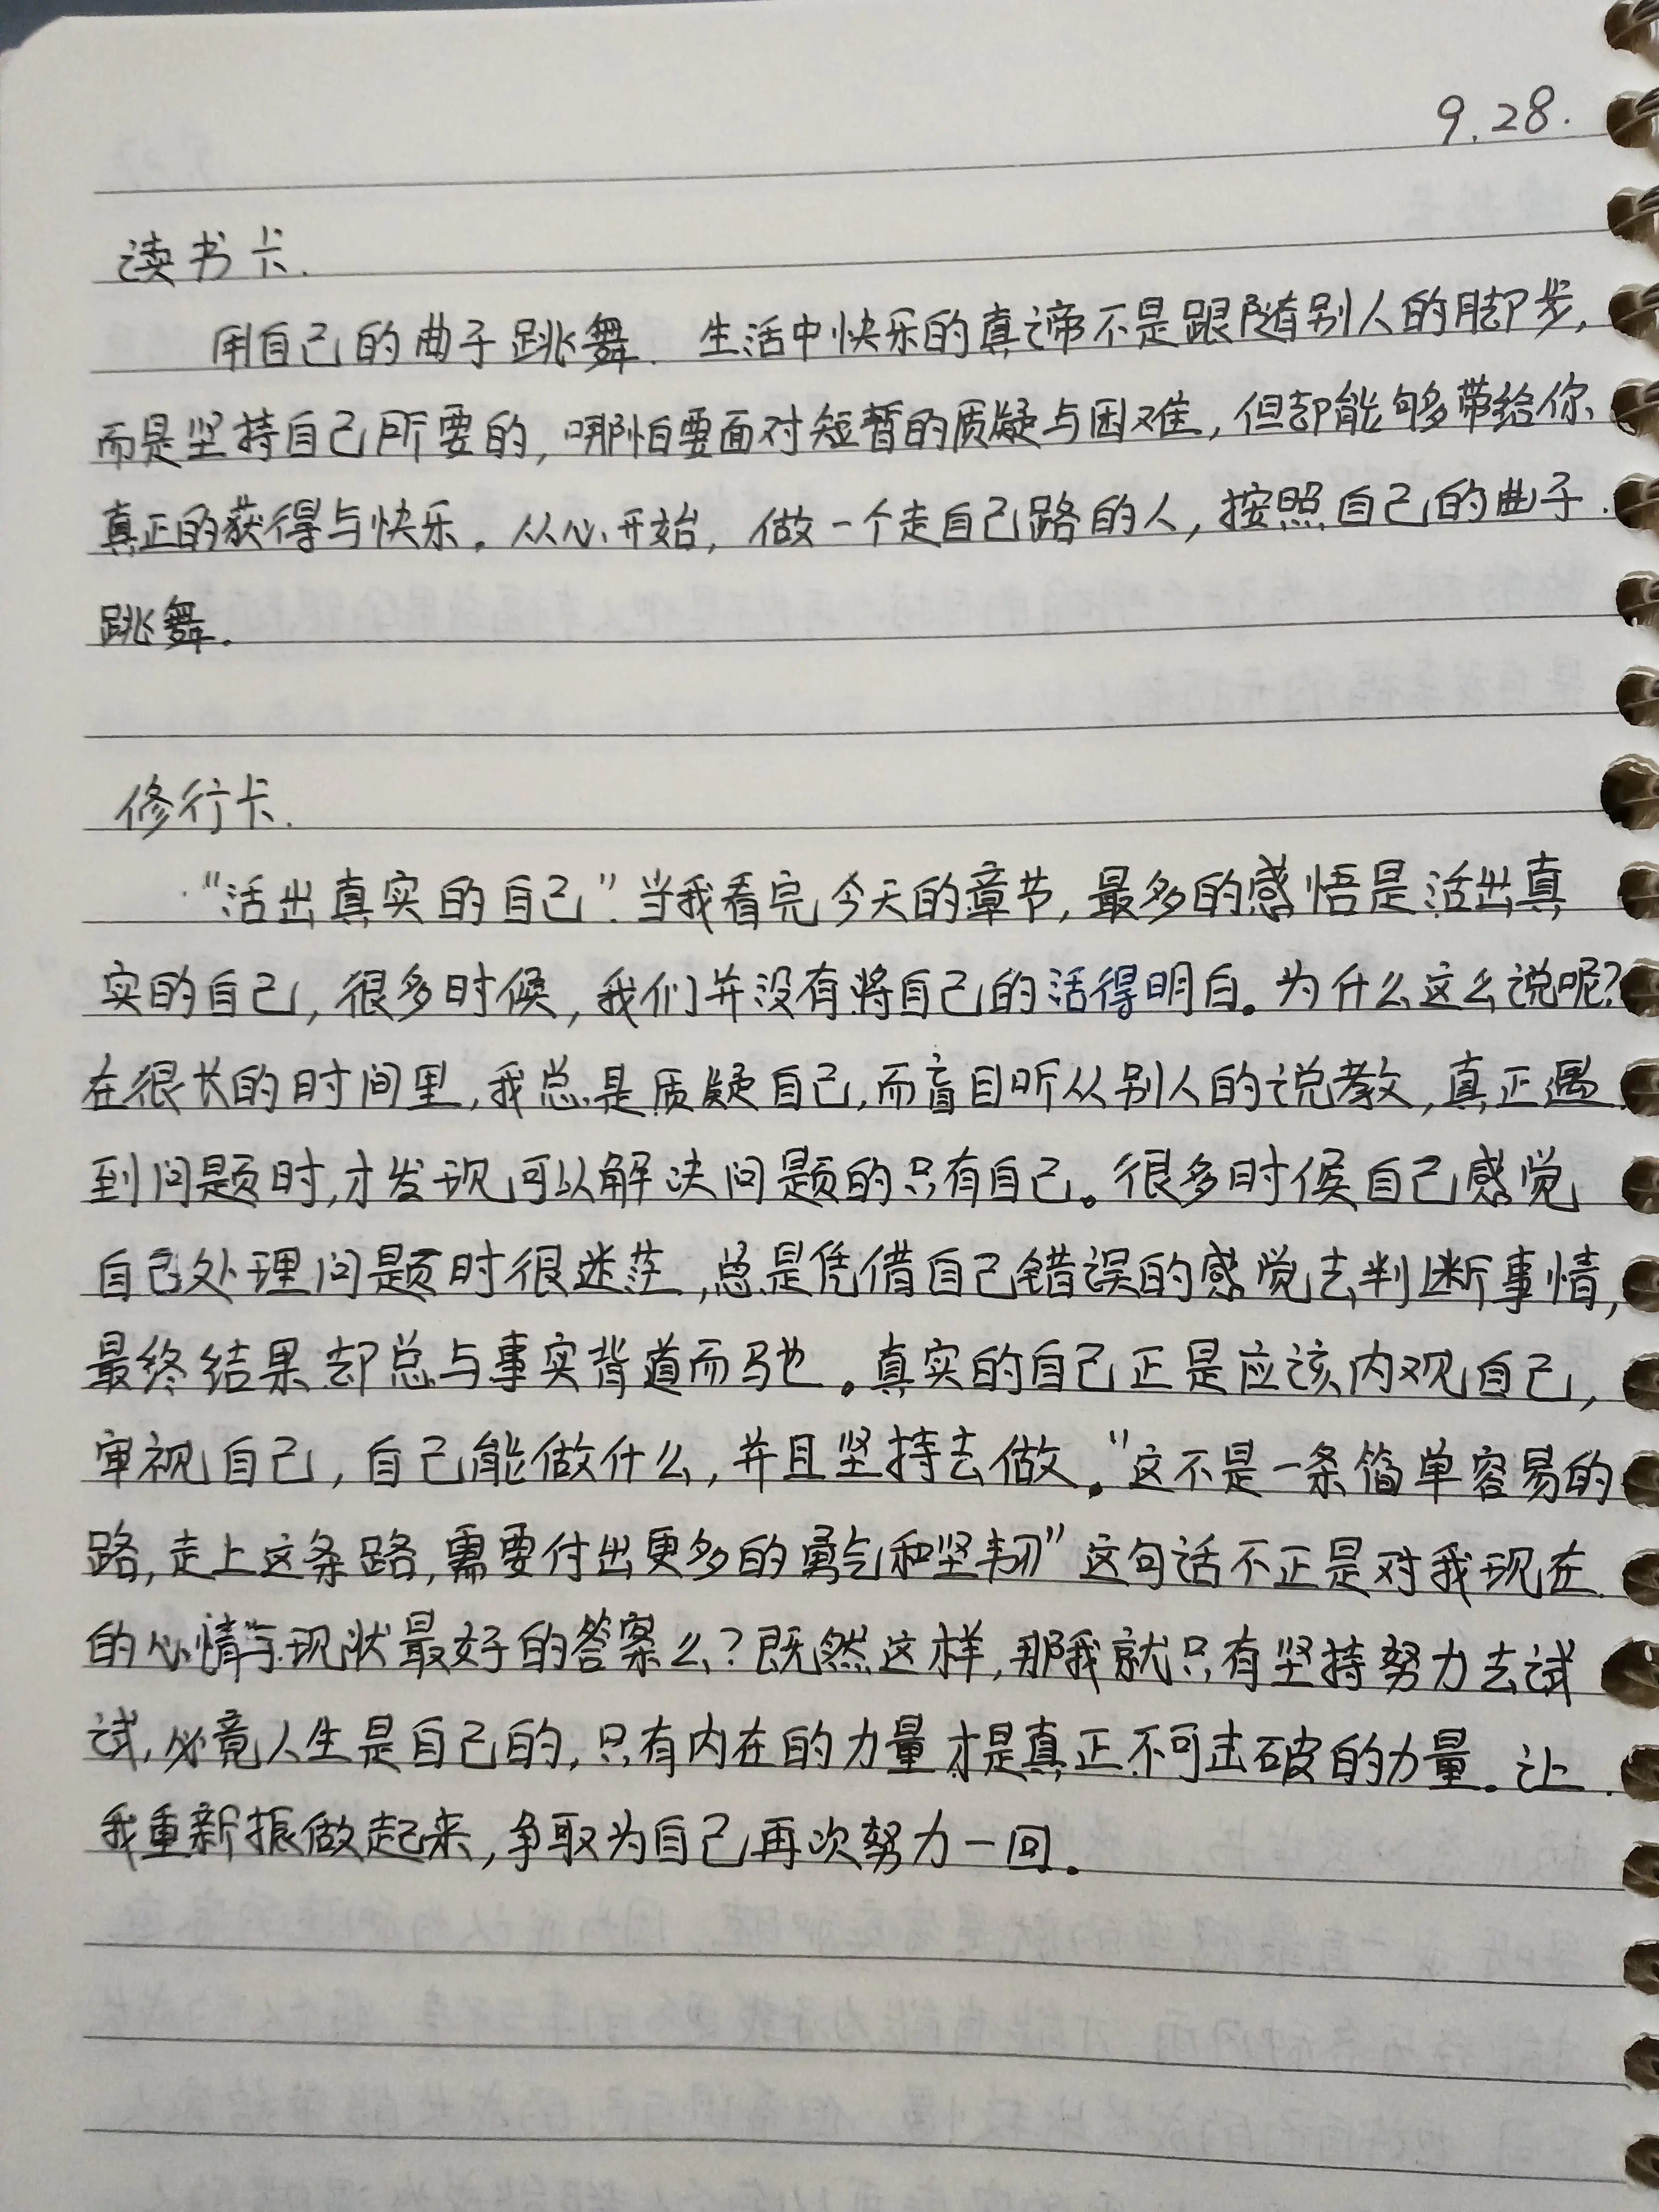 9.28.
读书卡.
用自己的曲子跳舞. 生活中快乐的真谛不是跟随别人的脚步,
而是坚持自己所要的, 哪怕要面对短暂的质疑与困难, 但却能够带给你
真正的获得与快乐. 从心开始, 做一个走自己路的人, 按照自己的曲子
跳舞.
修行卡.
“活出真实的自己”. 当我看完今天的章节, 最多的感悟是活出真
实的自己, 很多时候, 我们并没有将自己的活得明白. 为什么这么说呢?
在很长的时间里, 我总是质疑自己, 而盲目听从别人的说教, 真正遇
到问题时, 才发现可以解决问题的只有自己. 很多时候自己感觉
自己处理问题时很迷茫, 总是凭借自己错误的感觉去判断事情,
最终结果却总与事实背道而驰. 真实的自己正是应该内观自己,
审视自己, 自己能做什么, 并且坚持去做. “这不是一条简单容易的
路, 走上这条路, 需要付出更多的勇气和坚韧” 这句话不正是对我现在
的心情与现状最好的答案么? 既然这样, 那我就只有坚持努力去试
试, 必竟人生是自己的, 只有内在的力量才是真正不可击破的力量. 让
我重新振做起来, 争取为自己再次努力一回.